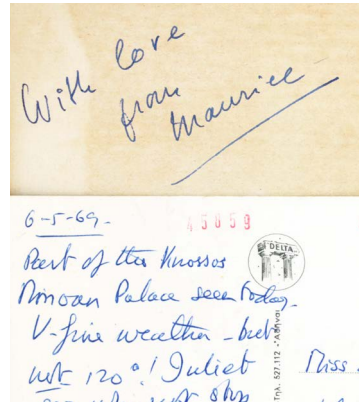 With love
from
Maurice
6-5-69.
45859
Part of the Knossos
DELTA
Minoan Palace seen today
V-fine weather - but
not 120°! Juliet
Miss
not stop
Τηλ. 527.112 • Αθήναι